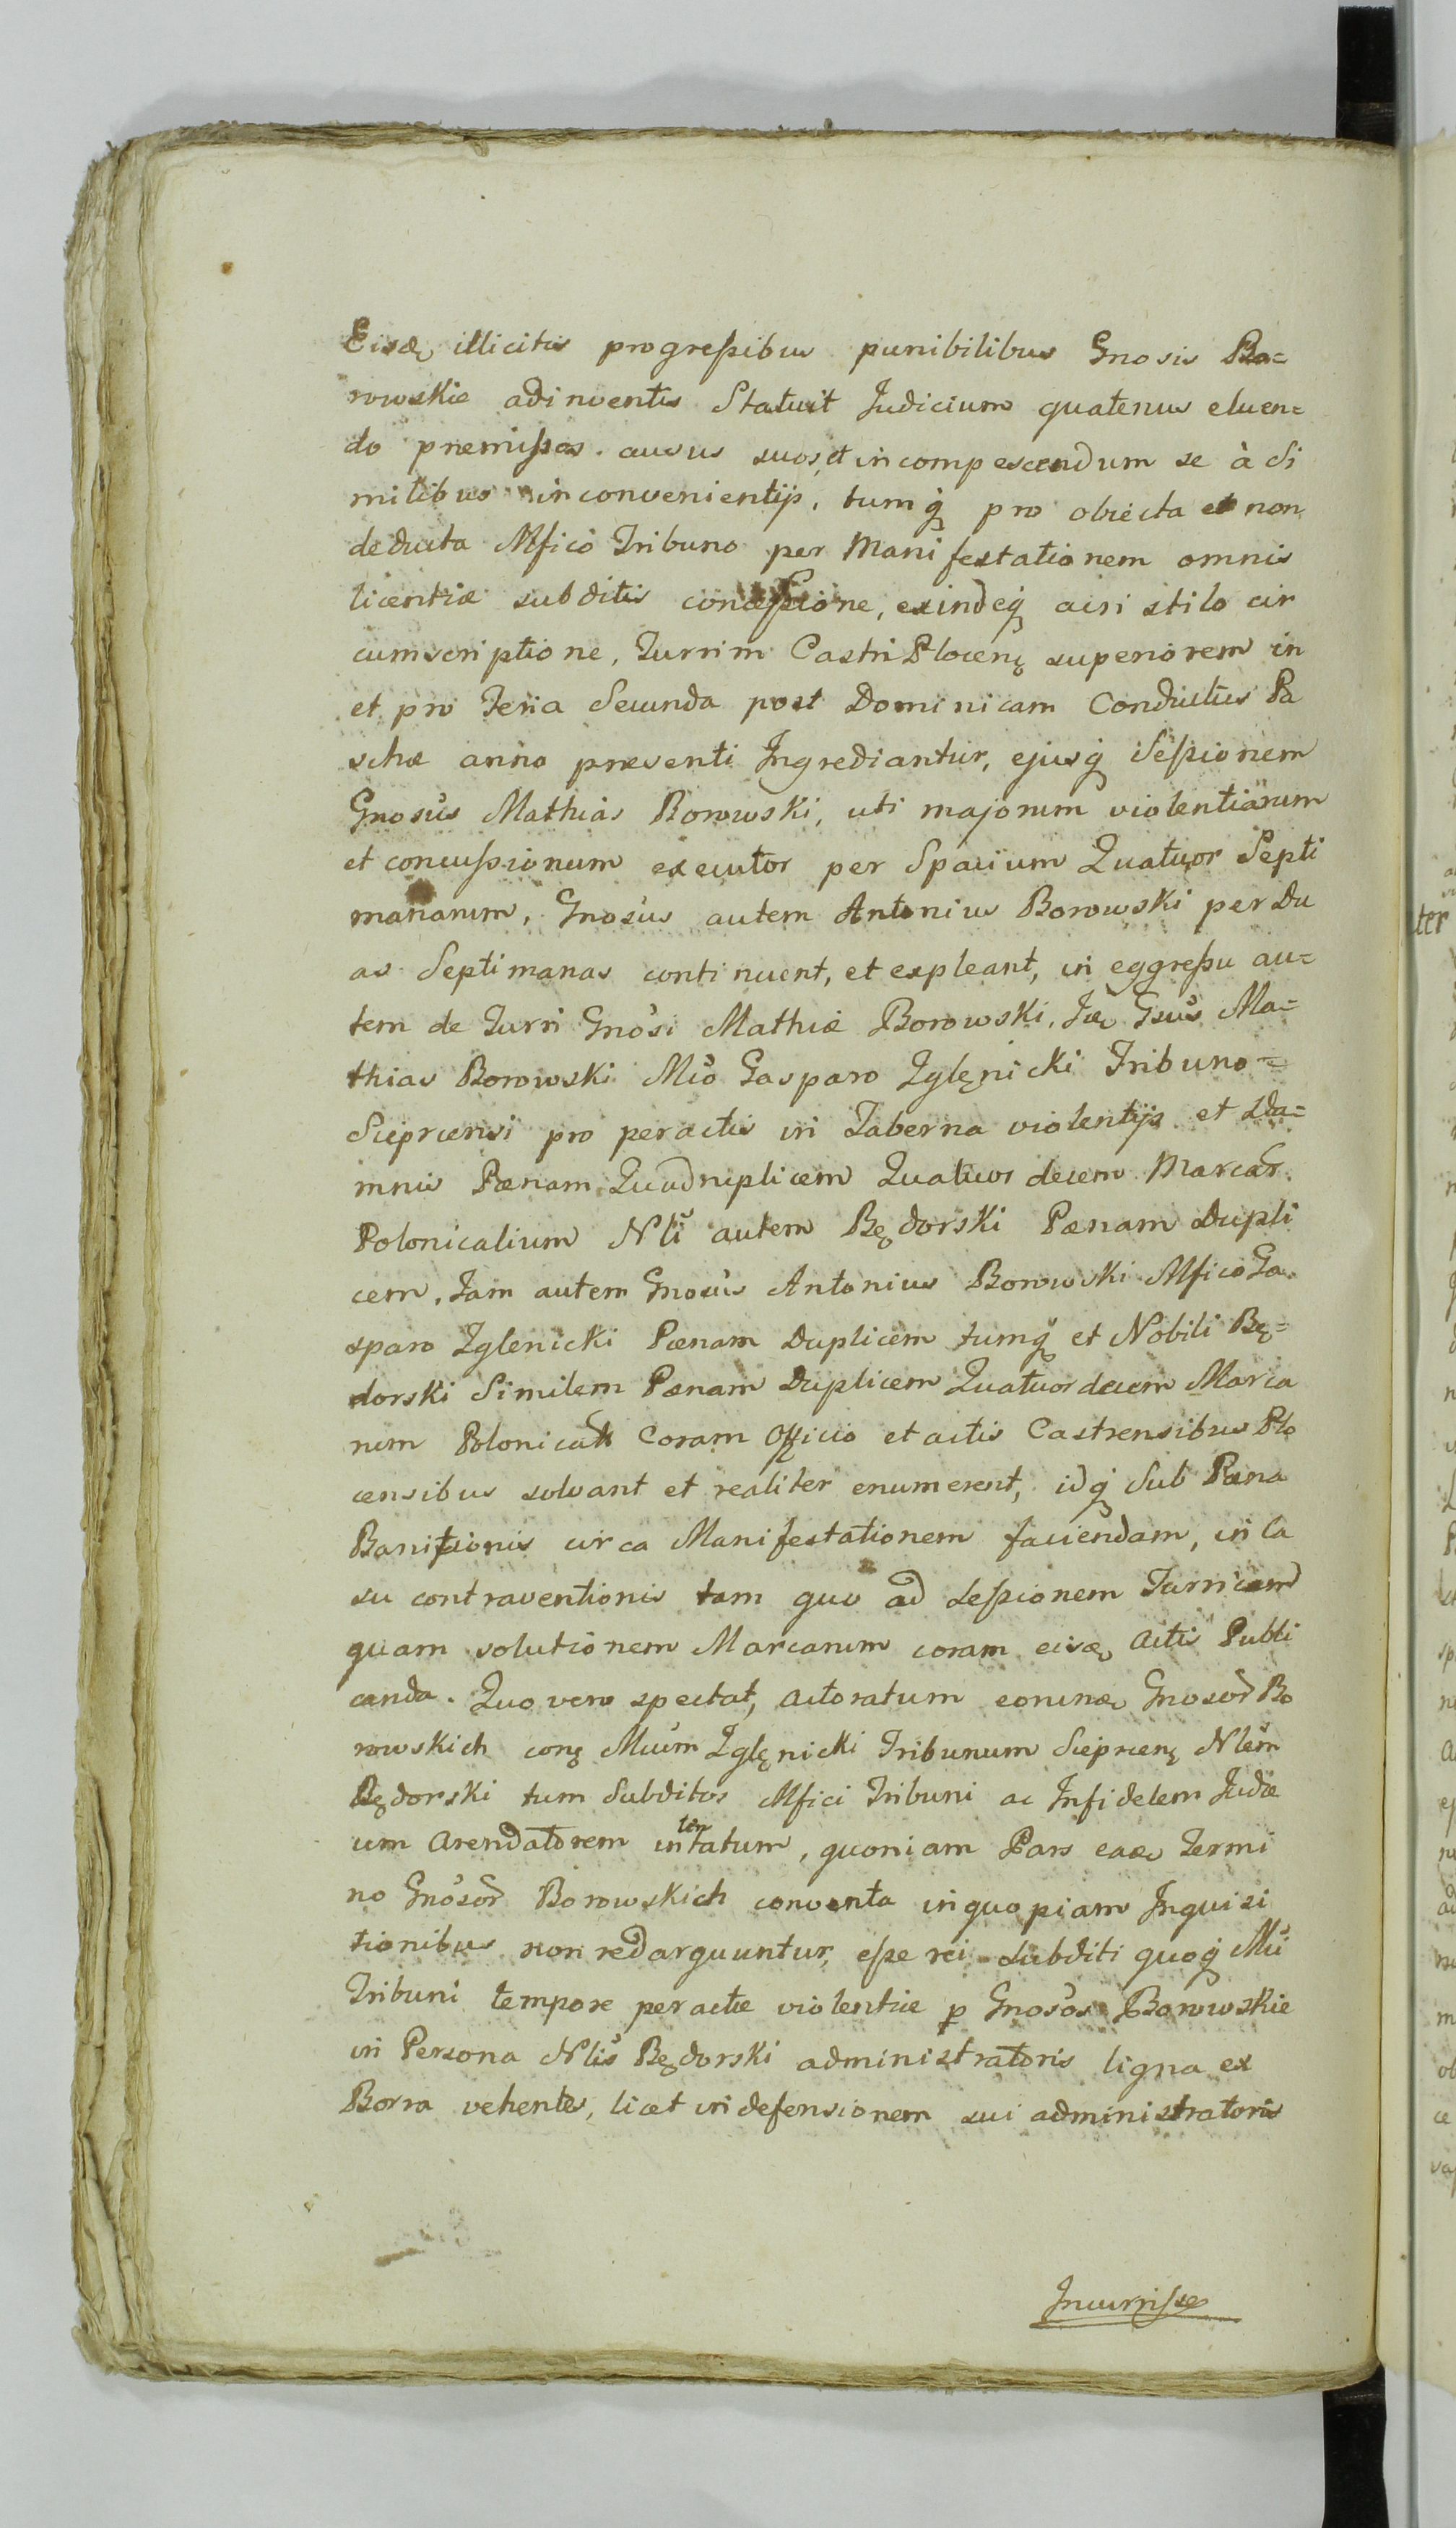 Eisdē illicitis progreſsibus punibilibus Gnosis Bo=
rowskie adinventis Statuit Judicium quatenus eluen=
do præmiſsos ausus suos, et in compescendum se à Si
milibus inconvenientijs, tumq́ pro objecta et non
deducta Mfico Tribuno per Manifestationem omnis
licentiæ subditis conceſsione, exindeq́ acri stilo cir
cumscriptione, Turrim Castri Plocenș superiorem in
et pro Feria Secunda post Dominicam Conductus Pa
schæ anno præsenti Ingrediantur, ejusq́ Seſsionem
Gnosus Mathias Borowski, uti majorum violentiarum
et concuſsionum executor per Spacium Quatuor Septi
manarum, Gnosus autem Antonius Borowski per Du
as Septimanas continuent, et expleant, in eggreſsu au=
tem de Turri Gnosi Mathiæ Borowski, Idē Gsus Ma=
thias Borowski Mco Gasparo Zglęnicki Tribuno=
Sieprcensi pro peractis in Taberna violentijs et Da=
mnis Pænam Quadruplicem Quatuor decem Marcar
Polonicalium Nli autem Będorski Pænam Dupli
cem, Jam autem Gnosus Antonius Borowski Mfico Ga
sparo Zglenicki Pænam Duplicem tumq́ et Nobili Bę=
dorski Similem Pænam Duplicem Quatuor decem Marca
rum Polonical Coram Officio et actis Castrensibus Plo
censibus solvant et realiter enumerent, idq́ Sub Pæna
Banitionis circa Manifestationem faciendam, in ca
su contraventionis tam quo ad Seſsionem Turricam
quam solutionem Marcarum coram eisdē actis Publi
canda. Quo vero spectat, actoratum eorundē Gnosor Bo
rowskich conș Mcum Zglęnicki Tribunum Sieprcenș Nlem
Będorski tum Subditos Mfici Tribuni ac Infidelem Judæ
um arendatorem in
ten
tatum, quoniam Pars eadē Termi
no Gnosor Borowskich conventa in quopiam Inquisi
tionibus non redarguuntur, eſse rei Subditi quoq́ Mci
Tribuni tempore peractæ violentiæ p Gnosos Borowskie
in Persona Nlis Będorski administratoris ligna ex
Borra vehentes, licet in defensionem sui administratoris
Incurriſse